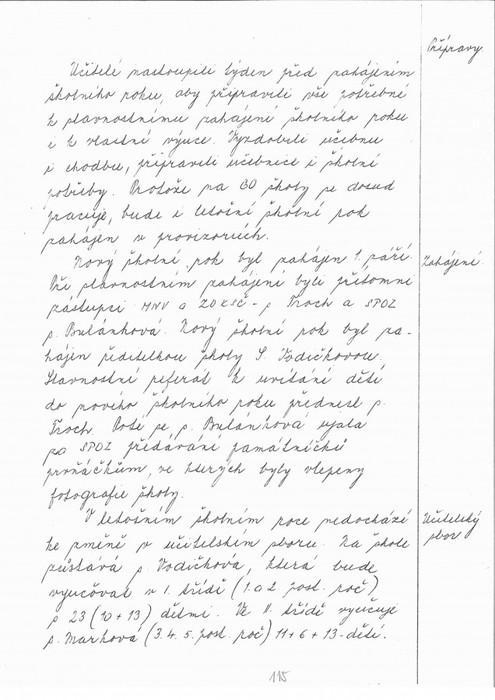 Přípravy
Učitelé nastoupili týden před zahájením
školního roku, aby připravili vše potřebné
k slavnostnímu zahájení školního roku
i k vlastní výuce. Vyzdobili učebnu
i chodbu, připravili učebnice i školní
potřeby. Protože na GO školy se dosud
pracuje, bude i letošní školní rok
zahájen v provizoriích.
Nový školní rok byl zahájen 1. září.
Zahájení
Při slavnostním zahájení byli přítomni
zástupci MNV a ZO KSČ - s. Troch a SPOZ
s. Bulánková. Nový školní rok byl za-
hájen ředitelkou školy S. Vodičkovou.
Slavnostní referát k uvítání dětí
do nového školního roku přednesl s.
Troch. Poté se s. Bulánková ujala
za SPOZ předávání památníčků
prvňáčkům, ve kterých byly vlepeny
fotografie školy.
V letošním školním roce nedochází
Učitelský
sbor
ke změně v učitelském sboru. Na škole
zůstává s. Vodičková, která bude
vyučovat v 1. třídě (1. a 2. post. roč)
s 23 (10 + 13) dětmi. Ve II. třídě vyučuje
s. Marková (3. 4. 5. post. roč) 11 + 6 + 13 - dětí.
115